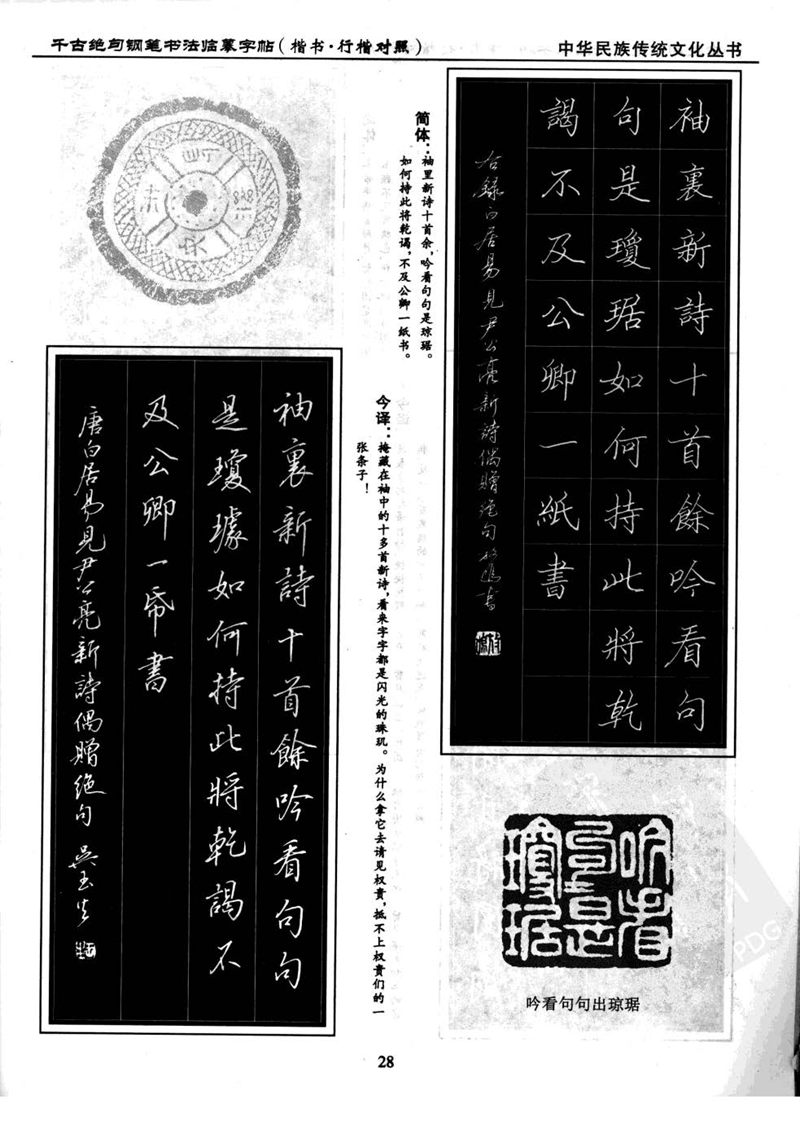 千古绝句钢笔书法临摹字帖（楷书·行楷对照）
中华民族传统文化丛书
袖裏新詩十首餘吟看句
句是瓊琚如何持此將乾
謁不及公卿一紙書
右録白居易見尹公亮新詩偶贈绝句
简体：袖里新诗十首余，吟看句句是琼琚。
如何持此将乾谒，不及公卿一纸书。
今译：掩藏在袖中的十多首新诗，看来字字都是闪光的珠玑。为什么拿它去请见权贵，抵不上权贵们的一
张条子！
袖裏新詩十首餘吟看句句
是瓊璩如何持此將乾謁不
及公卿一帋書
唐白居易見尹公亮新詩偶贈绝句 吴玉生
吟看句句是瓊琚
吟看句句出琼琚
28
PDG